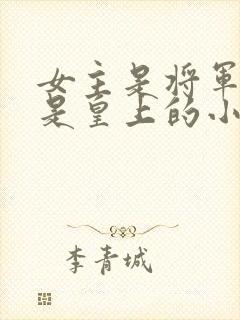 女主是將軍
是皇上的小
李青城